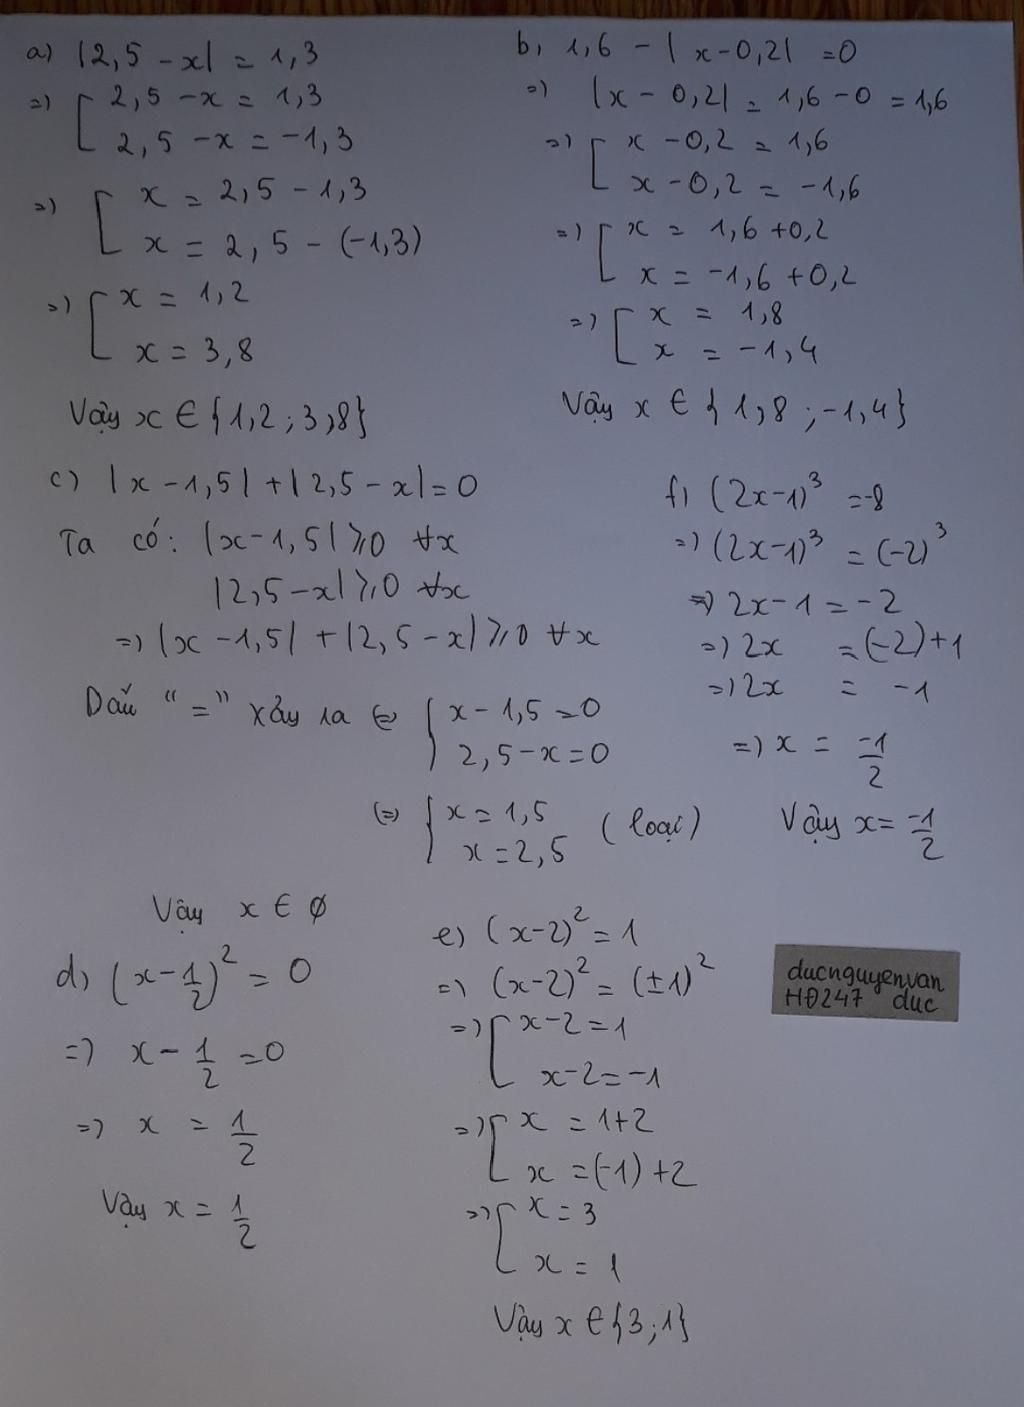 a) |2,5 - x| = 1,3
=) [ 2,5 - x = 1,3
2,5 - x = -1,3
=) [ x = 2,5 - 1,3
x = 2,5 - (-1,3)
=) [ x = 1,2
x = 3,8
Vậy x ∈ {1,2 ; 3,8}
b, 1,6 - | x - 0,2| = 0
=) |x - 0,2| = 1,6 - 0 = 1,6
=) [ x - 0,2 = 1,6
x - 0,2 = -1,6
=) [ x = 1,6 + 0,2
x = -1,6 + 0,2
=) [ x = 1,8
x = -1,4
Vậy x ∈ { 1,8 ; -1,4}
c) |x - 1,5| + |2,5 - x| = 0
Ta có: |x - 1,5| ⩾ 0 ∀x
|2,5 - x| ⩾ 0 ∀x
=) |x - 1,5| + |2,5 - x| ⩾ 0 ∀x
Dấu "=" xảy ra (=) { x - 1,5 = 0
2,5 - x = 0
(=) { x = 1,5
x = 2,5 (loại)
Vậy x ∈ ∅
f) (2x-1)³ = -8
=) (2x-1)³ = (-2)³
=) 2x - 1 = -2
=) 2x = (-2) + 1
=) 2x = -1
=) x = -1/2
Vậy x = -1/2
d, (x - 1/2)² = 0
=) x - 1/2 = 0
=) x = 1/2
Vậy x = 1/2
e) (x-2)² = 1
=) (x-2)² = (±1)²
=) [ x - 2 = 1
x - 2 = -1
=) [ x = 1 + 2
x = (-1) + 2
=) [ x = 3
x = 1
Vậy x ∈ {3 ; 1}
ducnguyenvan
HĐ247 duc